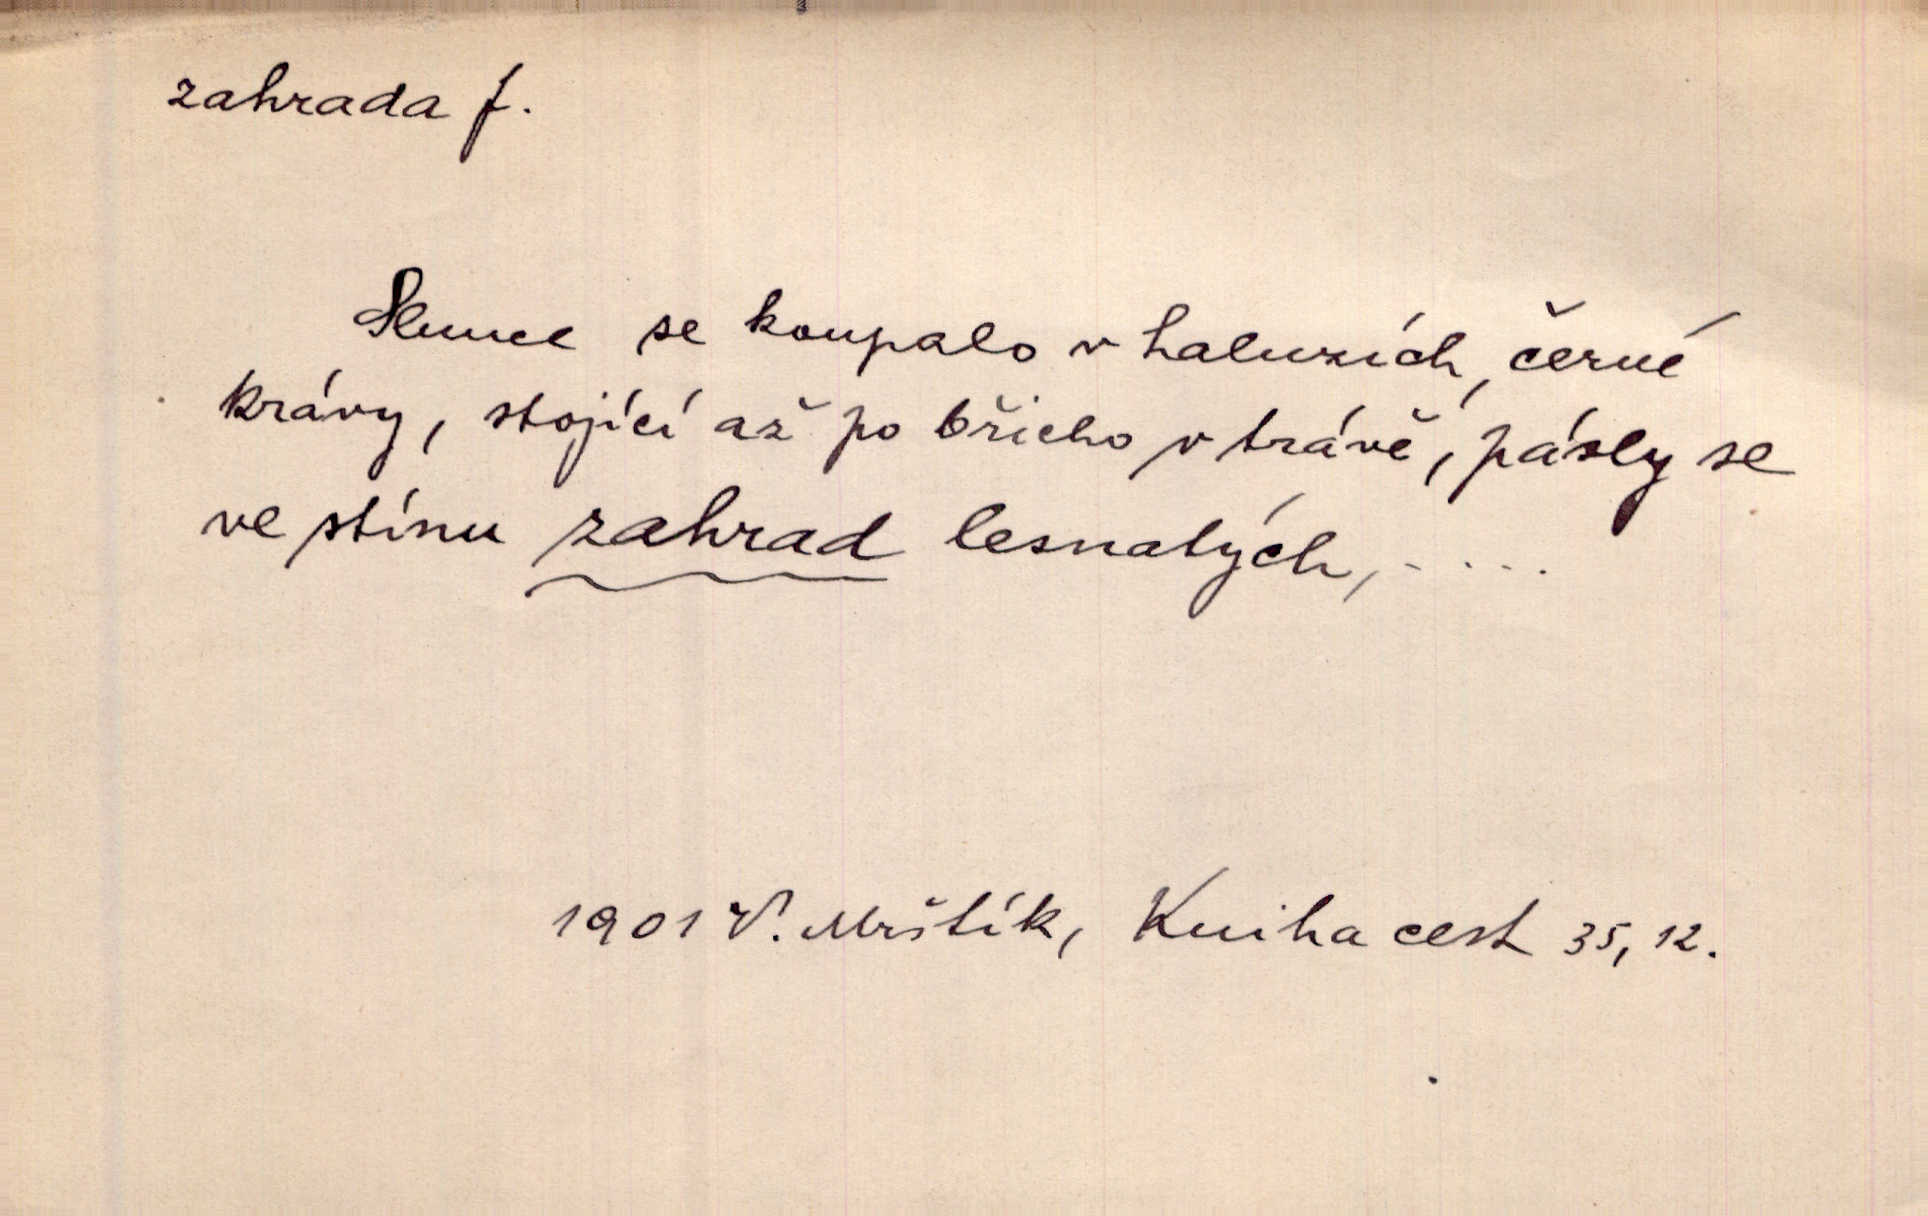 zahrada f.
Slunce se koupalo v haluzích, černé
krávy, stojící až po břicho v trávě, pásly se
ve stínu zahrad lesnatých, . . . .
1901 V. Mrštík, Kniha cest 35, 12.